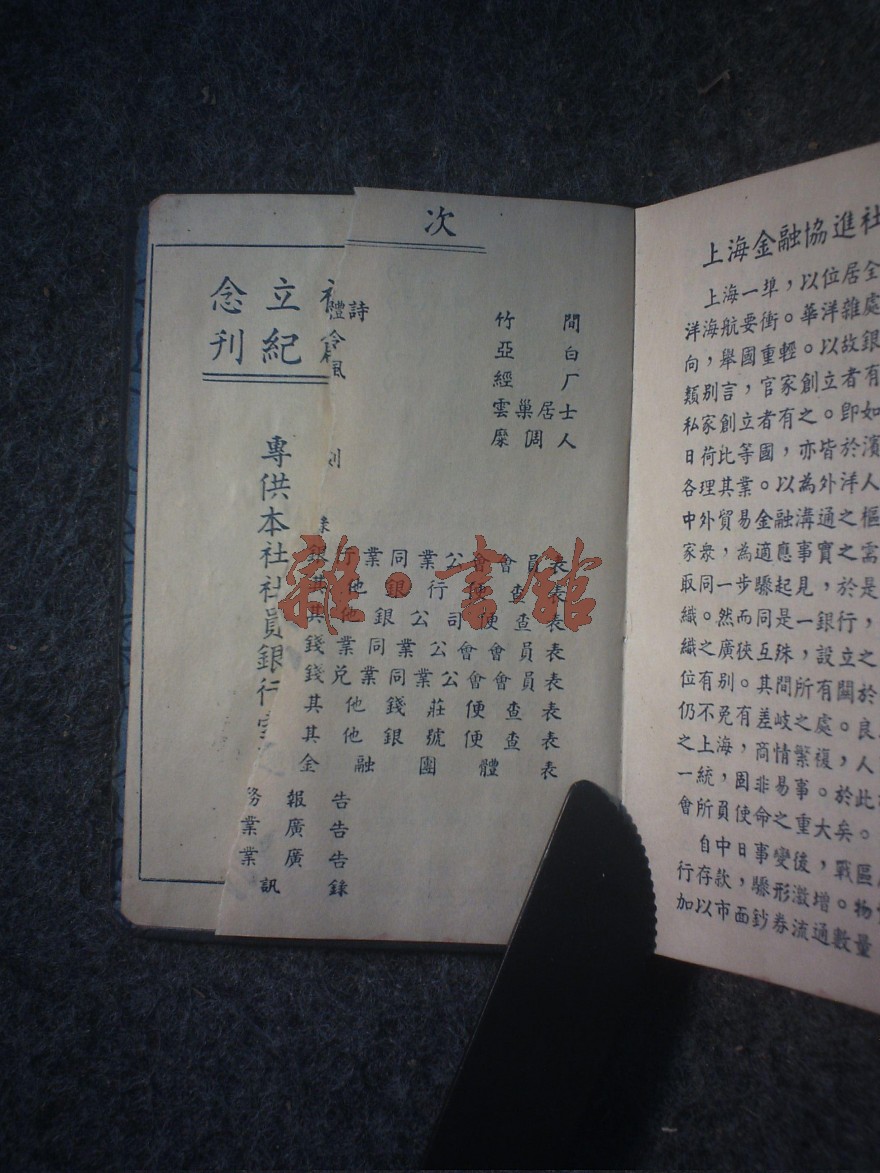 念立
刊紀
專供本社社員銀行
次
禮詩
竹　間
亞　白
經　厂
雲巢居士
縻倜人
銀行業同業公會會員表
其他銀行便查表
其他銀公司便查表
錢業同業公會會員表
錢兌業同業公會會員表
其他錢莊便查表
其他銀號便查表
金融團體表
務報告
業廣告
業廣告
訊錄
雜·書館
上海金融協進社
上海一埠，以位居全
洋海航要衝。華洋雜處
向，舉國重輕。以故銀
類別言，官家創立者有
私家創立者有之。即如
日荷比等國，亦皆於濱
各理其業。以為外洋人
中外貿易金融溝通之樞
家衆，為適應事實之需
取同一步驟起見，於是
織。然而同是一銀行，
織之廣狹互殊，設立之
位有別。其間所有關於
仍不免有差歧之處。良
之上海，商情繁複，人
一統，固非易事。於此
會所員使命之重大矣。
自中日事變後，戰區
行存款，驟形激增。物
加以市面鈔券流通數量